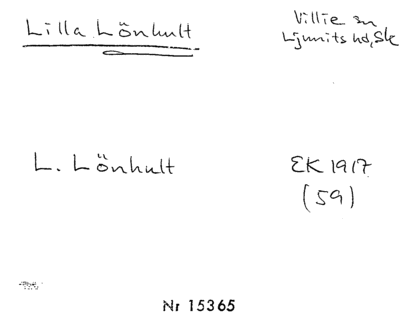 Lilla Lönhult
Villie sn
Ljunits hd, Sk
L. Lönhult
EK 1917
(59)
Nr 15365